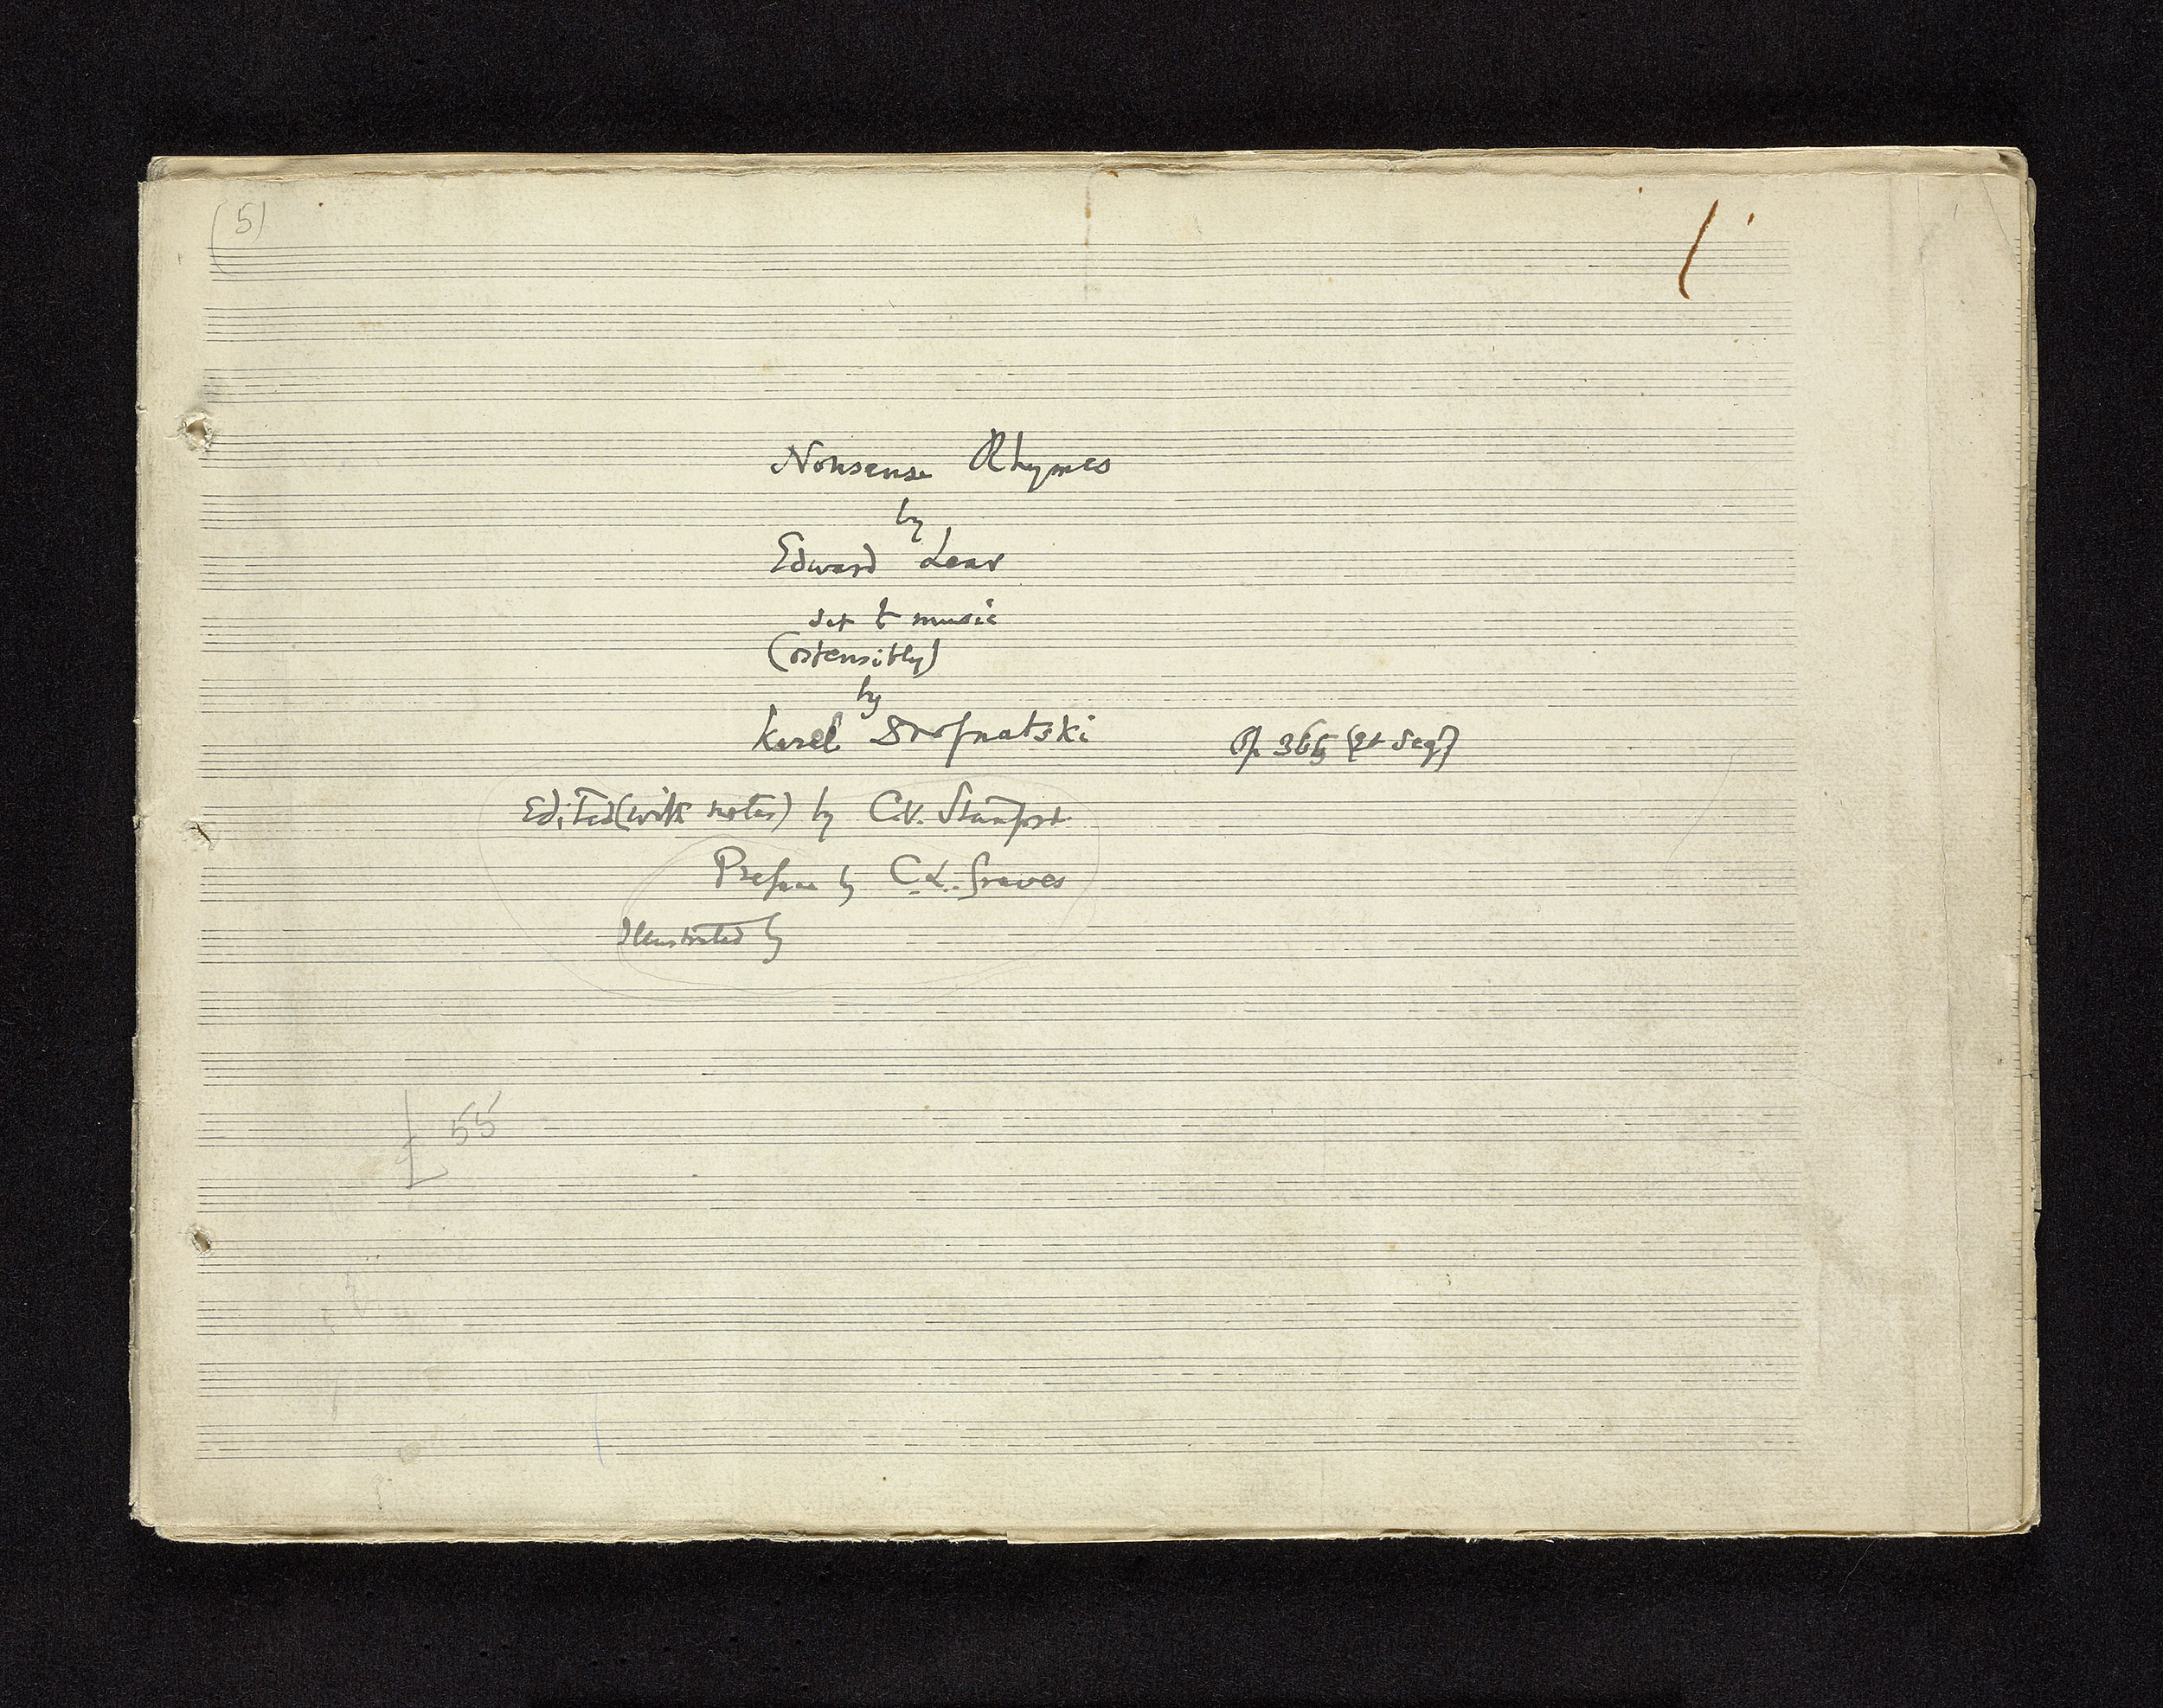 (5)
Nonsense Rhymes
by
Edward Lear
set to music
(ostensibly)
by
Karel Drofnatski Op. 365 (et seq)
Edited (with notes) by C.V. Stanford
Preface by C.L. Graves
Illustrated by
£ 55